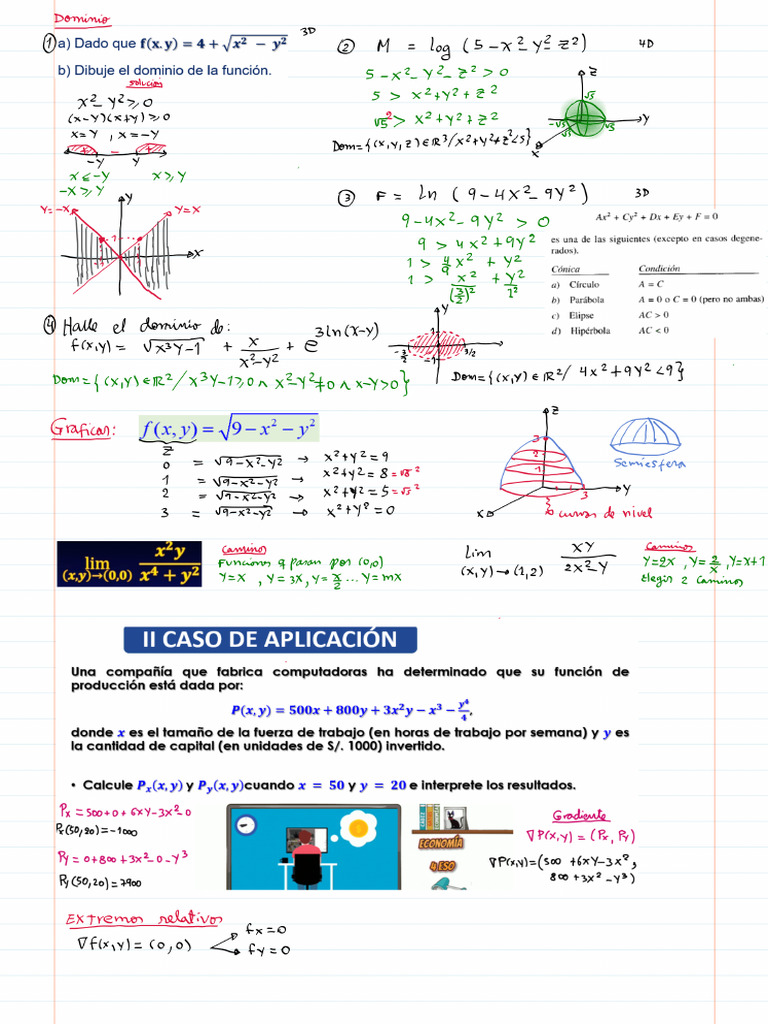 Dominio
① a) Dado que f(x.y) = 4 + √x² − y² 3D
b) Dibuje el dominio de la función.
solución
x² − y² ≥ 0
(x−y)(x+y) ≥ 0
x=y , x=−y
+ − +
−y y
x ≤ −y x ≥ y
−x ≥ y
y=−x y y=x
x
② M = log (5 − x² − y² − z²) 4D
5 − x² − y² − z² > 0
5 > x² + y² + z²
√5² > x² + y² + z²
Dom = {(x,y,z) ∈ ℝ³ / x²+y²+z² < 5}
z
√5
−√5 √5 √5 y
x
③ F = ln (9 − 4x² − 9y²) 3D
9 − 4x² − 9y² > 0
9 > 4x² + 9y²
1 > 4/9 x² + y²
1 > x²/(3/2)² + y²/1²
Ax² + Cy² + Dx + Ey + F = 0
es una de las siguientes (excepto en casos degene-
rados).
Cónica Condición
a) Círculo A = C
b) Parábola A = 0 o C = 0 (pero no ambas)
c) Elipse AC > 0
d) Hipérbola AC < 0
y
1
−3/2 3/2
−1
Dom = {(x,y) ∈ ℝ² / 4x² + 9y² < 9}
④ Halle el dominio de:
f(x,y) = √x³y−1 + x/x²−y² + e^3ln(x−y)
Dom = {(x,y) ∈ ℝ² / x³y−1 ≥ 0 ∧ x²−y² ≠ 0 ∧ x−y > 0}
Graficar: f(x, y) = √9 − x² − y²
z
0 = √9−x²−y² → x²+y² = 9
1 = √9−x²−y² → x²+y² = 8 = √8²
2 = √9−x²−y² → x²+y² = 5 = √5²
3 = √9−x²−y² → x²+y² = 0
z
3
2
1
3 y
x
curvas de nivel
Semiesfera
lim (x,y)→(0,0) x²y / x⁴ + y²
Caminos
Funciones q pasan por (0,0)
y=x , y=3x, y=x/2 ... y=mx
Lim (x,y)→(1,2) xy / 2x²−y
Caminos
y=2x , y=2/x , y=x+1
Elegir 2 caminos
II CASO DE APLICACIÓN
Una compañía que fabrica computadoras ha determinado que su función de
producción está dada por:
P(x, y) = 500x + 800y + 3x²y − x³ − y⁴/4,
donde x es el tamaño de la fuerza de trabajo (en horas de trabajo por semana) y y es
la cantidad de capital (en unidades de S/. 1000) invertido.
• Calcule Pₓ(x, y) y Pᵧ(x, y)cuando x = 50 y y = 20 e interprete los resultados.
Px = 500+0+6xy−3x²−0
Px(50,20) = −1000
Py = 0+800+3x²−0−y³
Py(50,20) = 7900
ECONOMÍA
4 ESO
Gradiente
∇P(x,y) = (Px, Py)
∇P(x,y) = (500 +6xy−3x²,
800 +3x² −y³)
Extremos relativos
∇f(x,y) = (0,0)
fx=0
fy=0